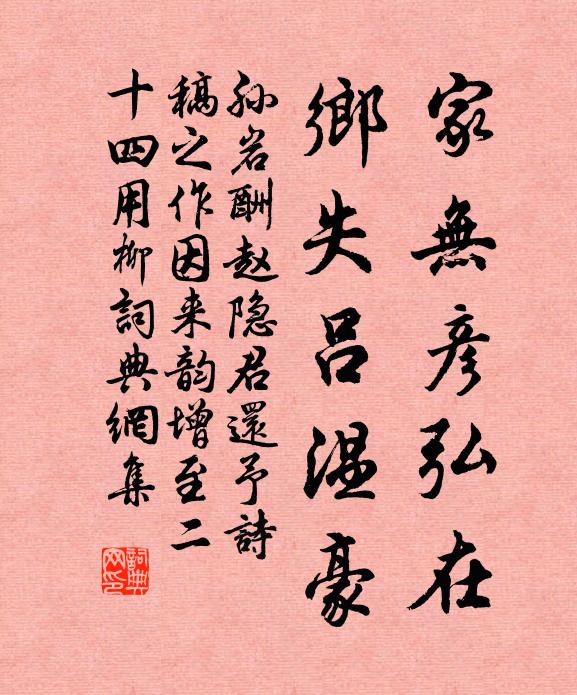 家無彥弘在
鄉失呂溫豪
孙岩酬赵隐君還予詩
稿之作因来韵增至二
十四用柳詞典網集
詞典网印